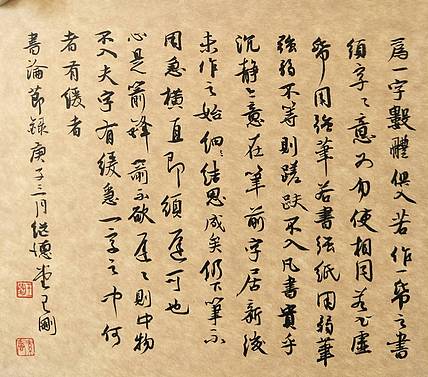 爲一字數體俱入若作一帋之書
須字々意別勿使相同若書虛
帋用強筆若書強紙用弱筆
強弱不等則蹉跌不入凡書貴乎
沉静令意在筆前字居新後
未作之始結思成矣仍下筆不
用急橫直即須遲可也
心是箭鋒箭不欲遲々則中物
不入夫字有緩急一字之中何
者有緩者
書論節錄庚子三月繼德堂王剛